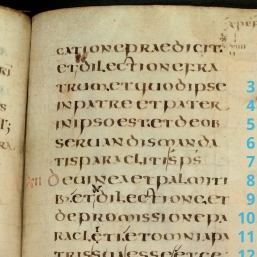 CATIONE PRAEDICIT.
ET DILECTIONE FRA
TRUM. ET QUOD IPSE
IN PATRE ET PATER
IN IPSO EST. ET DE OB
SERUANDIS MANDA
TIS PARACLITI SPS
DE UINEA ET PALMITI
B; ET DILECTIONE. ET
DE PROMISSIONE PA
RACLETI. ET OMNIA PA
TRIS SUA ESSE
3
4
5
6
7
8
9
10
11
12